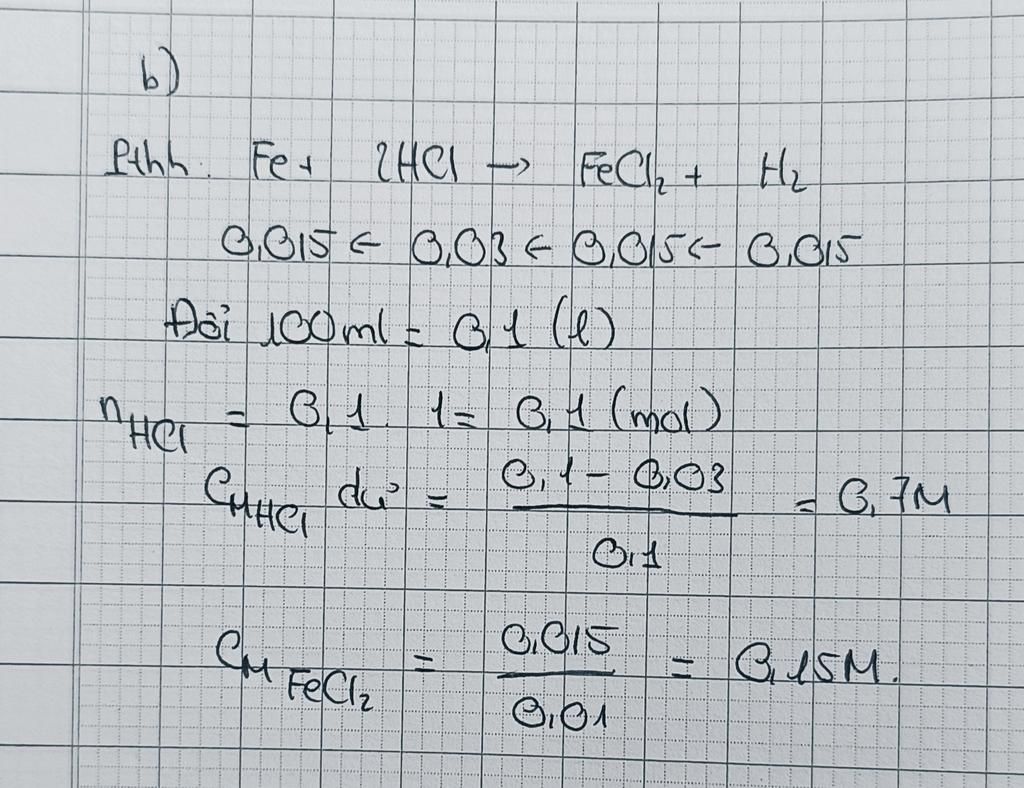 b)
Pthh. Fe + 2HCl → FeCl₂ + H₂
0,015 ← 0,03 ← 0,015 ← 0,015
Đổi 100ml = 0,1 (l)
nHCl = 0,1. 1 = 0,1 (mol)
CMHCl dư = (0,1 - 0,03)/0,1 = 0,7M
CM FeCl₂ = 0,015/0,01 = 0,15M.